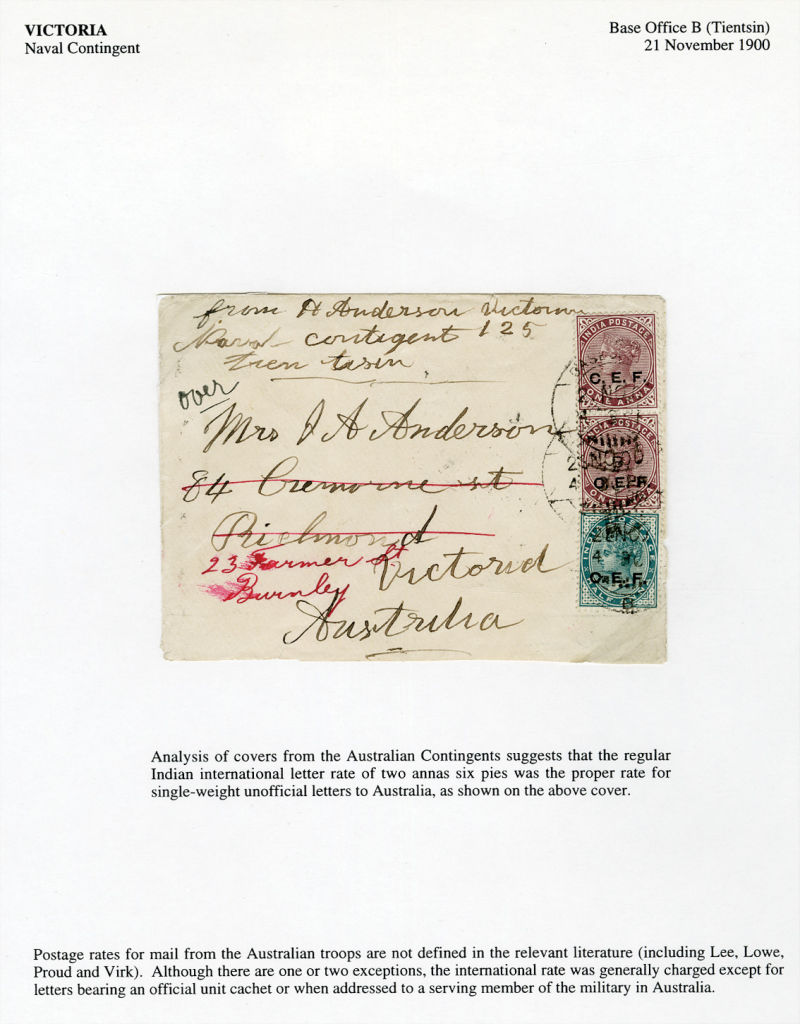 VICTORIA
Naval Contingent
Base Office B (Tientsin)
21 November 1900
from A Anderson Victorian
Naval contigent 125
Tien tsin
over
Mrs J A Anderson
84 Cremorne st
Richmond
23 Farmer St
Burnley
Victoria
Australia
INDIA POSTAGE
C. E. F
ONE ANNA
INDIA POSTAGE
C. E. F
ONE ANNA
C. E. F.
HALF ANNA
Analysis of covers from the Australian Contingents suggests that the regular
Indian international letter rate of two annas six pies was the proper rate for
single-weight unofficial letters to Australia, as shown on the above cover.
Postage rates for mail from the Australian troops are not defined in the relevant literature (including Lee, Lowe,
Proud and Virk). Although there are one or two exceptions, the international rate was generally charged except for
letters bearing an official unit cachet or when addressed to a serving member of the military in Australia.